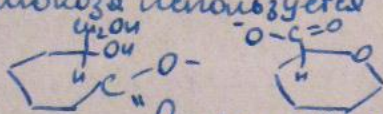 используется
CH₂OH
OH
H
C
O⁻
O
⁻O
C
O
O
H